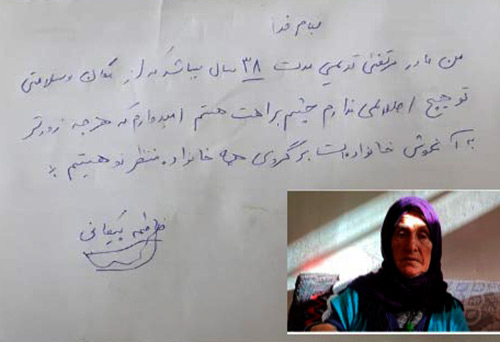 بنام خدا
من مادر مرتضی قدیمی مدت ۳۸ سال میباشد که از مکان و سلامتی
تو هیچ اطلاعی ندارم چشم براهت هستم امیدوارم که هرچه زودتر
به آغوش خانواده ات برگردی همه خانواده منتظر تو هستیم
فاطمه